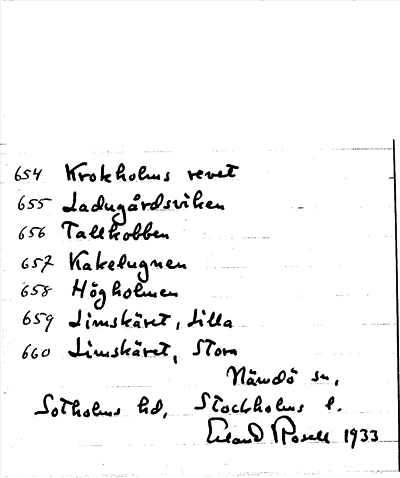 654 Krokholms revet
655 Ladugårdsviken
656 Tallkobben
657 Kakelugnen
658 Högholmen
659 Limskäret, Lilla
660 Limskäret, Stora
Nämdö sn,
Sotholms hd, Stockholms l.
Erland Rosell 1933